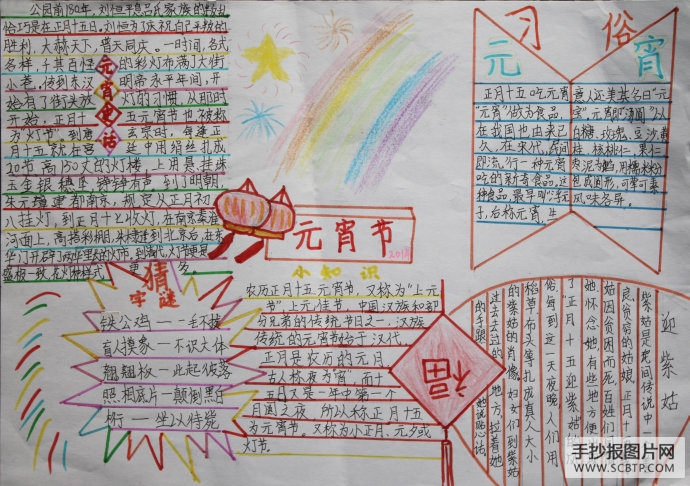 公园前180年，刘恒平息吕氏家族的
俗巧是在正月十五日。刘恒为了庆祝自己平叛的
胜利，大赦天下，普天同庆。一时间，各式
各样，千其百怪的彩灯布满了大街
小巷。传到东汉明帝永平年间，开
始有了街头放灯的习惯，从那时
开始，正月十五元宵节也又被称
为"灯节"。到唐玄宗时，每逢正
月十五就在宫中用绢丝扎成
20节高150丈的灯楼
上用悬挂珠
玉金银穗
朱元璋建都南京，规定从正月初
八挂灯，到正月十七收灯，在南京秦淮
河面上，
元宵更话
元宵节
习俗
元宵
正月十五吃元宵
"元宵"做为食品，
在我国也由来已
久，在宋代，民间
即流行一种元宵
吃的新奇食品，这
种食品，最早叫"浮元
子，后称元宵，生
意人还美其名曰"元
宝"。元宵即"汤圆"以
白糖，玫瑰，豆沙，黄
桂，核桃仁，果仁
枣泥为馅，用糯米粉
包成圆形，可荤可素
风味各异。
猜字谜
铁公鸡——一毛不拔
盲人摸象——不识大体
翘翘板——此起彼落
照相底片——颠倒黑白
轿子——坐以待毙
小知识
农历正月十五元宵节，又称为"上元
节"，上元佳节，中国汉族和部
分兄弟的传统节日之一，汉族
传统的元宵节始于汉代，
正月是农历的元月
古人称夜为"宵"而十
五日又是一年中第一个
月圆之夜，所以称正月十五
为元宵节。又称为小正月、元夕或
灯节。
福
迎紫姑
紫姑是民间传说中一
良、贫穷的姑娘，正月十
姑因贫困而死，百姓们
她怀念她，有些地方便
了正月十五迎紫姑
俗每到这一天夜晚，人们用
稻草、布头等扎成真人大小
的紫姑的肖像，妇女们到紫姑
过去
地方，拉着她
的手，跟她说贴心话，
手抄报图片网
www.SCBTP.com